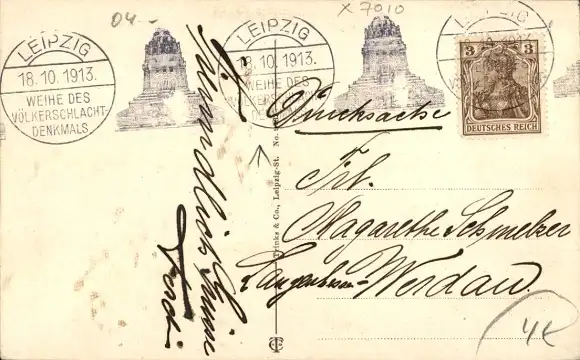 04.-
X 7010
LEIPZIG
18.10.1913.
WEIHE DES
VÖLKERSCHLACHT-
DENKMALS
LEIPZIG
18.10.1913.
WEIHE DES
VÖLKERSCHLACHT-
LEIPZIG
3 3
DEUTSCHES REICH
Drucksache
Frl.
Magarethe Schmelzer
Werdau
Trinks & Co., Leipzig-St. No.
4€